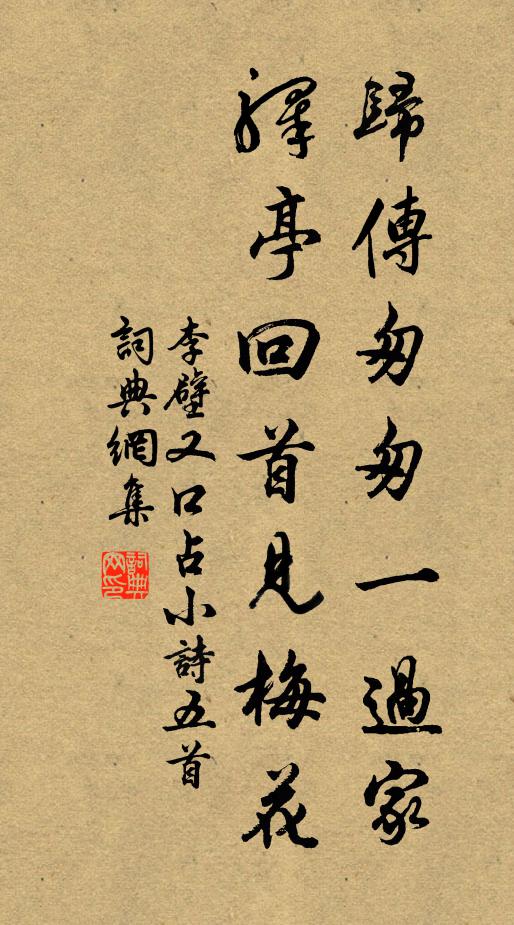 歸傳匆匆一過家
驛亭回首見梅花
李壁又口占小詩五首
詞典網集
詞典網印